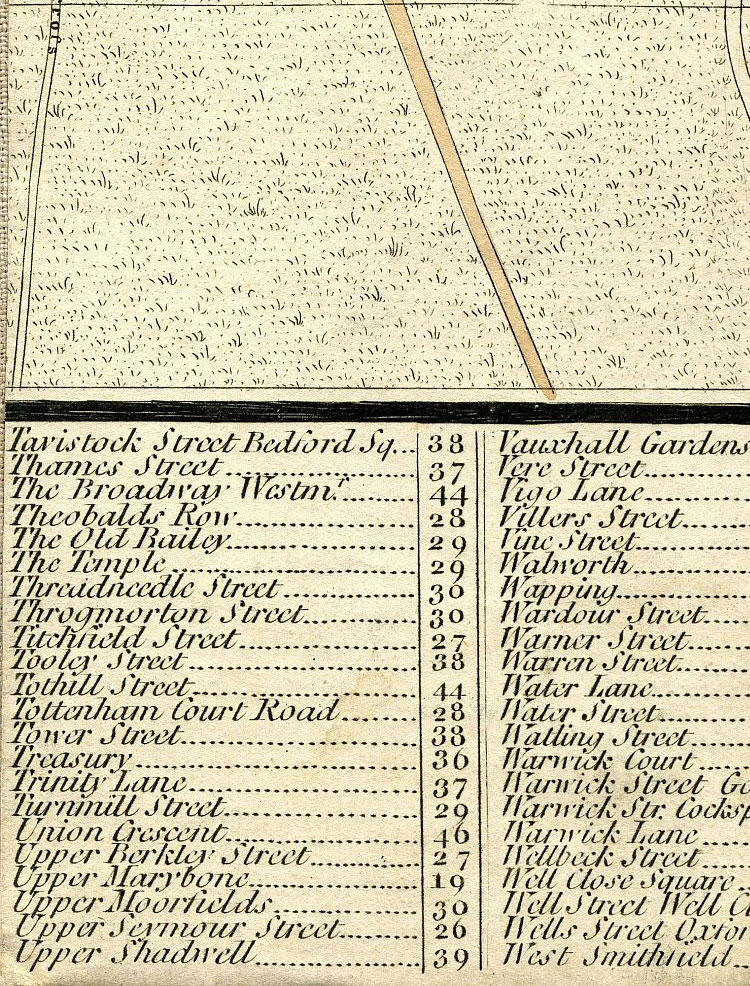 rofs
Tavistock Street Bedford Sq... 38
Thames Street 37
The Broadway Westm.r 44
Theobalds Row 28
The Old Bailey 29
The Temple 29
Threadneedle Street 30
Throgmorton Street 30
Titchfield Street 27
Tooley Street 38
Tothill Street 44
Tottenham Court Road 28
Tower Street 38
Treasury 36
Trinity Lane 37
Turnmill Street 29
Union Crescent 46
Upper Berkley Street 27
Upper Marybone 19
Upper Moorfields 30
Upper Seymour Street 26
Upper Shadwell 39
Vauxhall Gardens
Vere Street
Vigo Lane
Villers Street
Vine Street
Walworth
Wapping
Wardour Street
Warner Street
Warren Street
Water Lane
Water Street
Watling Street
Warwick Court
Warwick Street Go
Warwick Str. Cocksp
Warwick Lane
Wellbeck Street
Well Close Square
Well Street Well Cl
Wells Street Oxfor
West Smithfield